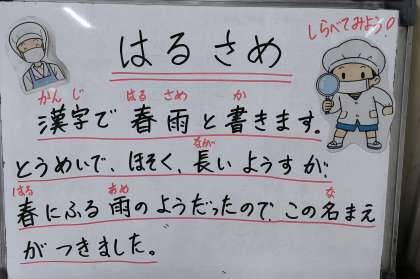 はるさめ
しらべてみよう!
かんじ はる さめ か
漢字で 春雨 と 書きます。
なが
とうめいで、ほそく、長い ようすが、
はる あめ な
春にふる 雨のようだったので、この名まえ
がつきました。